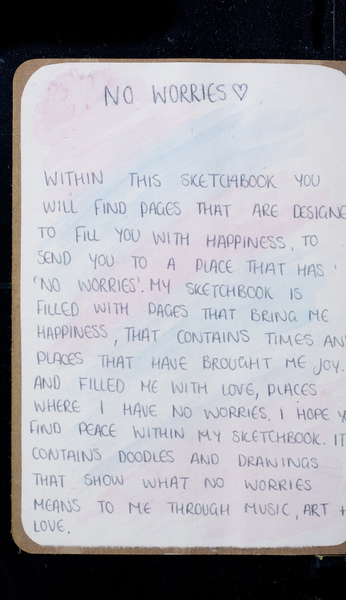 NO WORRIES♡
WITHIN THIS SKETCHBOOK YOU
WILL FIND PAGES THAT ARE DESIGNE
TO FILL YOU WITH HAPPINESS, TO
SEND YOU TO A PLACE THAT HAS '
'NO WORRIES'. MY SKETCHBOOK IS
FILLED WITH PAGES THAT BRING ME
HAPPINESS, THAT CONTAINS TIMES AN
PLACES THAT HAVE BROUGHT ME JOY.
AND FILLED ME WITH LOVE, PLACES
WHERE I HAVE NO WORRIES. I HOPE Y
FIND PEACE WITHIN MY SKETCHBOOK. IT
CONTAINS DOODLES AND DRAWINGS
THAT SHOW WHAT NO WORRIES
MEANS TO ME THROUGH MUSIC, ART +
LOVE.